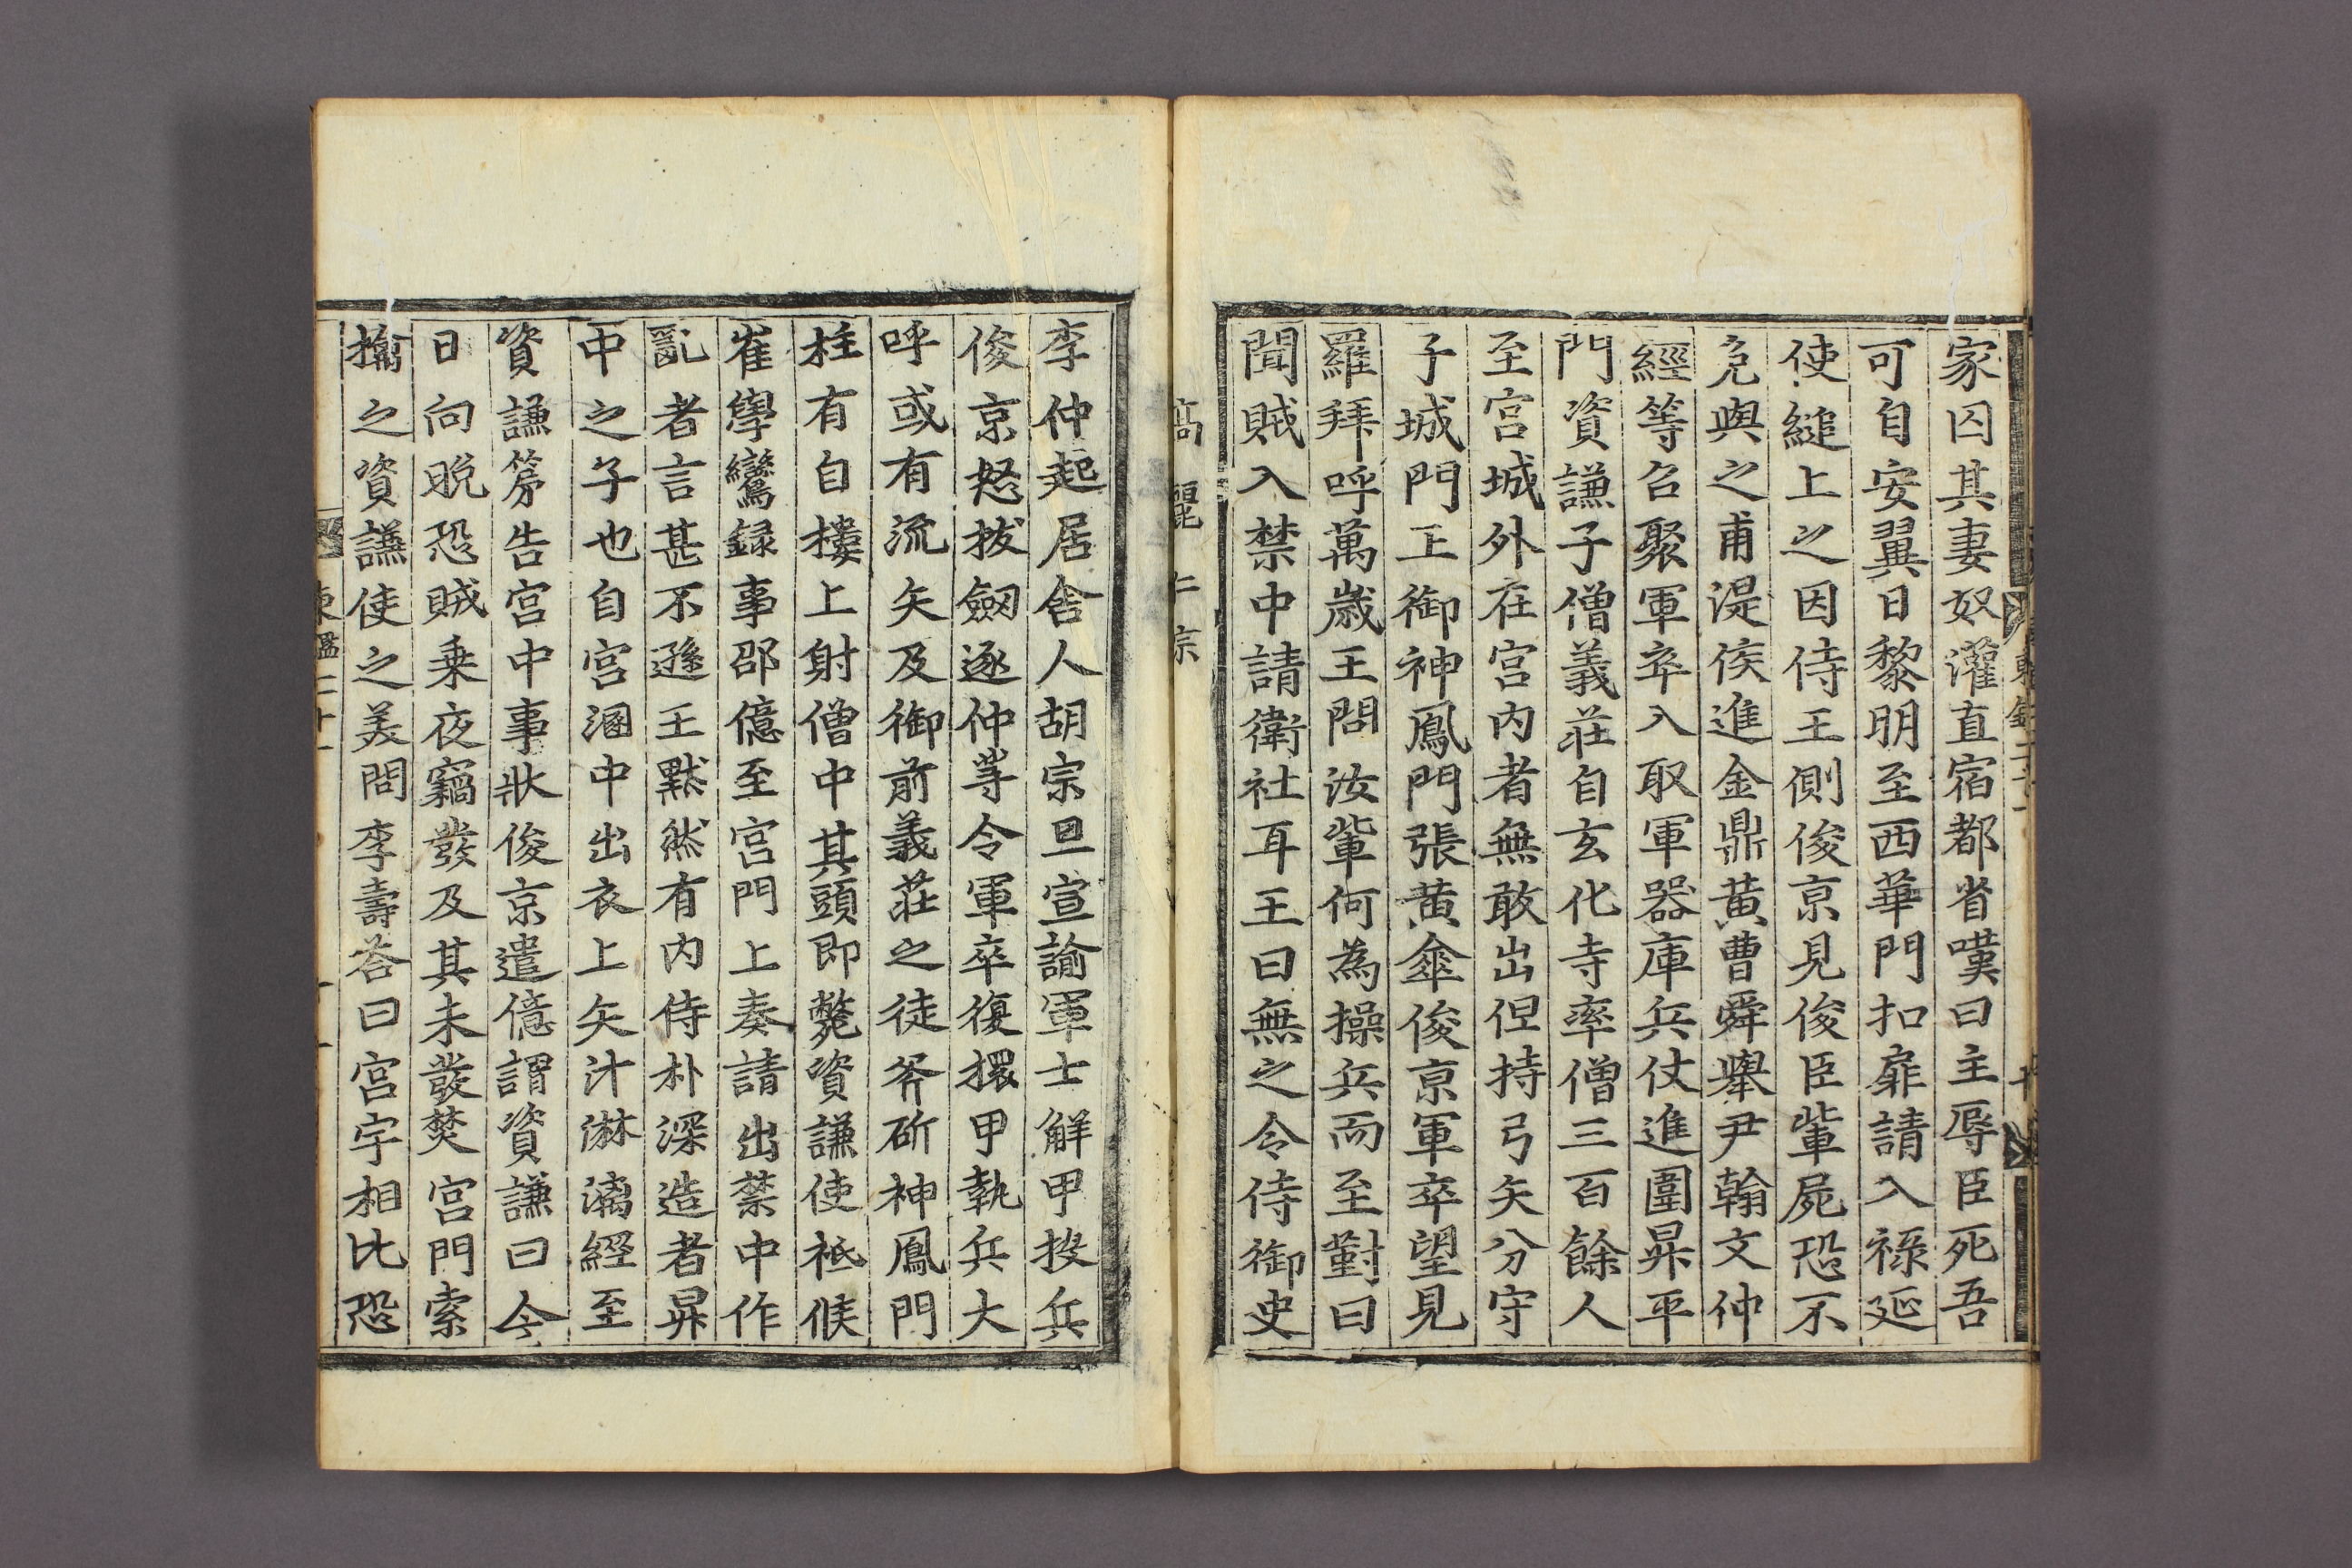 家囚其妻奴灌直宿都省嘆曰主辱臣死吾
可自安翼日黎明至西華門扣扉請入祿延
使縋上之因侍王側俊京見俊臣輩屍恐不
免與之甫湜侯進金鼎黃曹舜擧尹翰文仲
經等召聚軍卒入取軍器庫兵仗進圍昇平
門資謙子僧義莊自玄化寺率僧三百餘人
至宮城外在宮內者無敢出但持弓矢分守
子城門王御神鳳門張黃傘俊京軍卒望見
羅拜呼萬歲王問汝輩何為操兵而至對曰
聞賊入禁中請衛社耳王曰無之令侍御史
高麗仁宗
李仲起居舍人胡宗旦宣諭軍士解甲投兵
俊京怒拔劒逐仲等令軍卒復擐甲執兵大
呼或有流矢及御前義莊之徒斧斫神鳳門
柱有自樓上射僧中其頭即斃資謙使祗候
崔學鸞錄事邵億至宮門上奏請出禁中作
亂者言甚不遜王默然有內侍朴深造者昇
中之子也自宮溷中出衣上矢汁淋漓經至
資謙第告宮中事狀俊京遣億謂資謙曰今
日向晚恐賊乘夜竊發及其未發焚宮門索
擒之資謙使之美問李壽荅曰宮宇相比恐